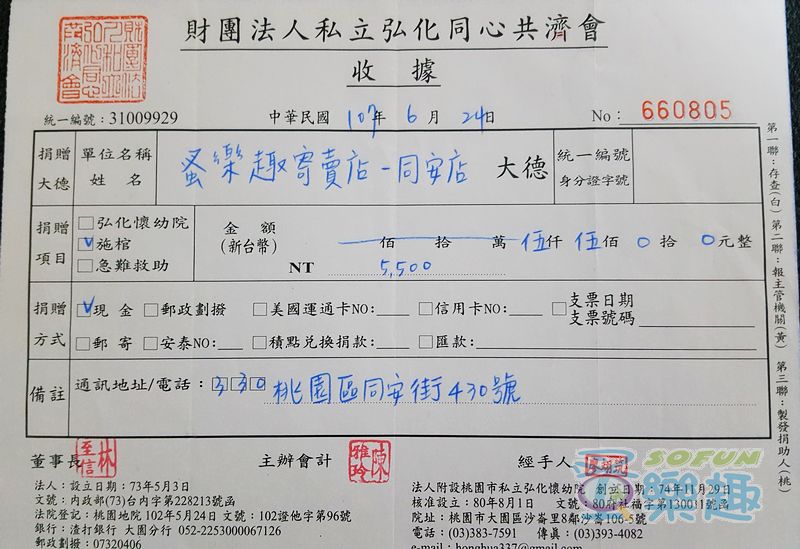 財團法人私立弘化同心共濟會
收 據
統一編號：31009929 中華民國 107年 6 月 24日 No： 660805
捐贈大德 單位名稱 姓名 蚤樂趣寄賣店-同安店 大德 統一編號 身分證字號
捐贈項目
□弘化懷幼院
☑施棺
□急難救助
金額(新台幣) 佰 拾 萬 伍仟 伍佰 0 拾 0元整
NT 5,500
捐贈方式
☑現金 □郵政劃撥 □美國運通卡NO： □信用卡NO： □支票日期 支票號碼
□郵寄 □安泰NO： □積點兌換捐款： □匯款：
備註 通訊地址/電話：330 桃園區同安街430號
董事長 林至信 主辦會計 陳雅玲 經手人
法人：設立日期：73年5月3日
文號：內政部(73)台內字第228213號函
法院登記：桃園地院 102年5月24日 文號：102證他字第96號
銀行：渣打銀行 大園分行 052-2253000067126
郵政劃撥：07320406
法人附設桃園市私立弘化懷幼院 創立日期：74年11月29日
核准設立：80年8月1日 文號：80府社福字第130011號函
院址：桃園市大園區沙崙里8鄰沙崙106-5號
電話：(03)383-7591 傳真：(03)393-4082
e-mail：honghua337@gmail.com
第一聯：存查(白) 第二聯：報主管機關(黃) 第三聯：製發捐助人(桃)
SOFUN
蚤樂趣